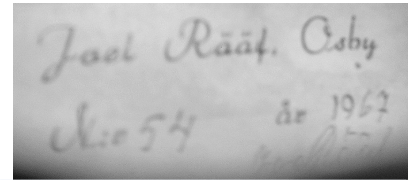 Joel Rääf. Osby
Nro 54 år 1967